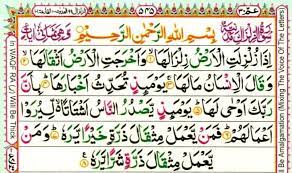 بِسْمِ اللهِ الرَّحْمٰنِ الرَّحِيْمِ
اِذَا زُلْزِلَتِ الْاَرْضُ زِلْزَالَهَا ۙ وَاَخْرَجَتِ الْاَرْضُ اَثْقَالَهَا ۙ
وَقَالَ الْاِنْسَانُ مَا لَهَا ۚ يَوْمَئِذٍ تُحَدِّثُ اَخْبَارَهَا ۙ بِاَنَّ
رَبَّكَ اَوْحٰى لَهَا ؕ يَوْمَئِذٍ يَّصْدُرُ النَّاسُ اَشْتَاتًا ۙ لِّيُرَوْا
اَعْمَالَهُمْ ؕ فَمَنْ يَّعْمَلْ مِثْقَالَ ذَرَّةٍ خَيْرًا يَّرَهٗ ؕ وَمَنْ
يَّعْمَلْ مِثْقَالَ ذَرَّةٍ شَرًّا يَّرَهٗ
Will Be Thick
ll Be Amalgamation (Mixing The Voice Of The Letters)